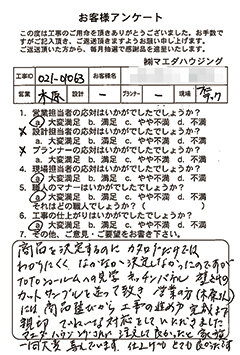 お客様アンケート
この度は工事のご用命を頂きありがとうございました。お手数で
すがご記入頂き、ご返送頂けますようお願い申し上げます。
ご返送頂いた方から、毎月抽選で感謝品を進呈いたします。
㈱マエダハウジング
工事ID 021-0063 お客様名
営業 木原 設計 － プランナー － 現場
1. 営業担当者の応対はいかがでしたでしょうか?
a. 大変満足 b. 満足 c. やや不満 d. 不満
設計担当者の応対はいかがでしたでしょうか?
a. 大変満足 b. 満足 c. やや不満 d. 不満
プランナーの応対はいかがでしたでしょうか?
a. 大変満足 b. 満足 c. やや不満 d. 不満
4. 現場担当者の応対はいかがでしたでしょうか?
a. 大変満足 b. 満足 c. やや不満 d. 不満
5. 職人のマナーはいかがでしたでしょうか?
a. 大変満足 b. 満足 c. やや不満 d. 不満
それはどの職人でしょうか? ( )
6. 工事の仕上がりはいかがでしたでしょうか?
a. 大変満足 b. 満足 c. やや不満 d. 不満
7. その他、ご意見・ご要望をお書き下さい。
商品を決定するのに カタログだけでは
わかりにくく なかなか決定しなかったのですが
TOTOショールームへの見学 キッチンパネル 壁などの
カットサンプルを送って頂き 営業の方(木原さん)
には 商品選びから 工事の進め方 完成まで
親切 ていねいな対応をしていただきました
マエダハウジングさんが 良かったと 家族
一同大変喜んでいます。仕上がりもとても良かったです